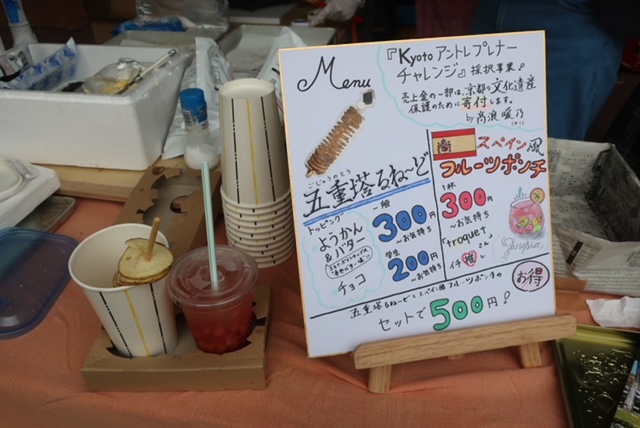 Menu
『Kyotoアントレプレナー
チャレンジ』採択事業♪
売上金の一部は、京都の文化遺産
保護のために寄付します。
ごじゅうのとう
五重塔るね〜ど
トッピング
ようかん
&バター
チョコ
一般
300円
〜お気持ち
学生
200円
〜お気持ち
スペイン風
フルーツポンチ
1杯
300円
〜お気持ち
『troquet』
さん
イチ推し
Sangria
お得
五重塔るね〜ど と スペイン風フルーツポンチの
セットで500円♪